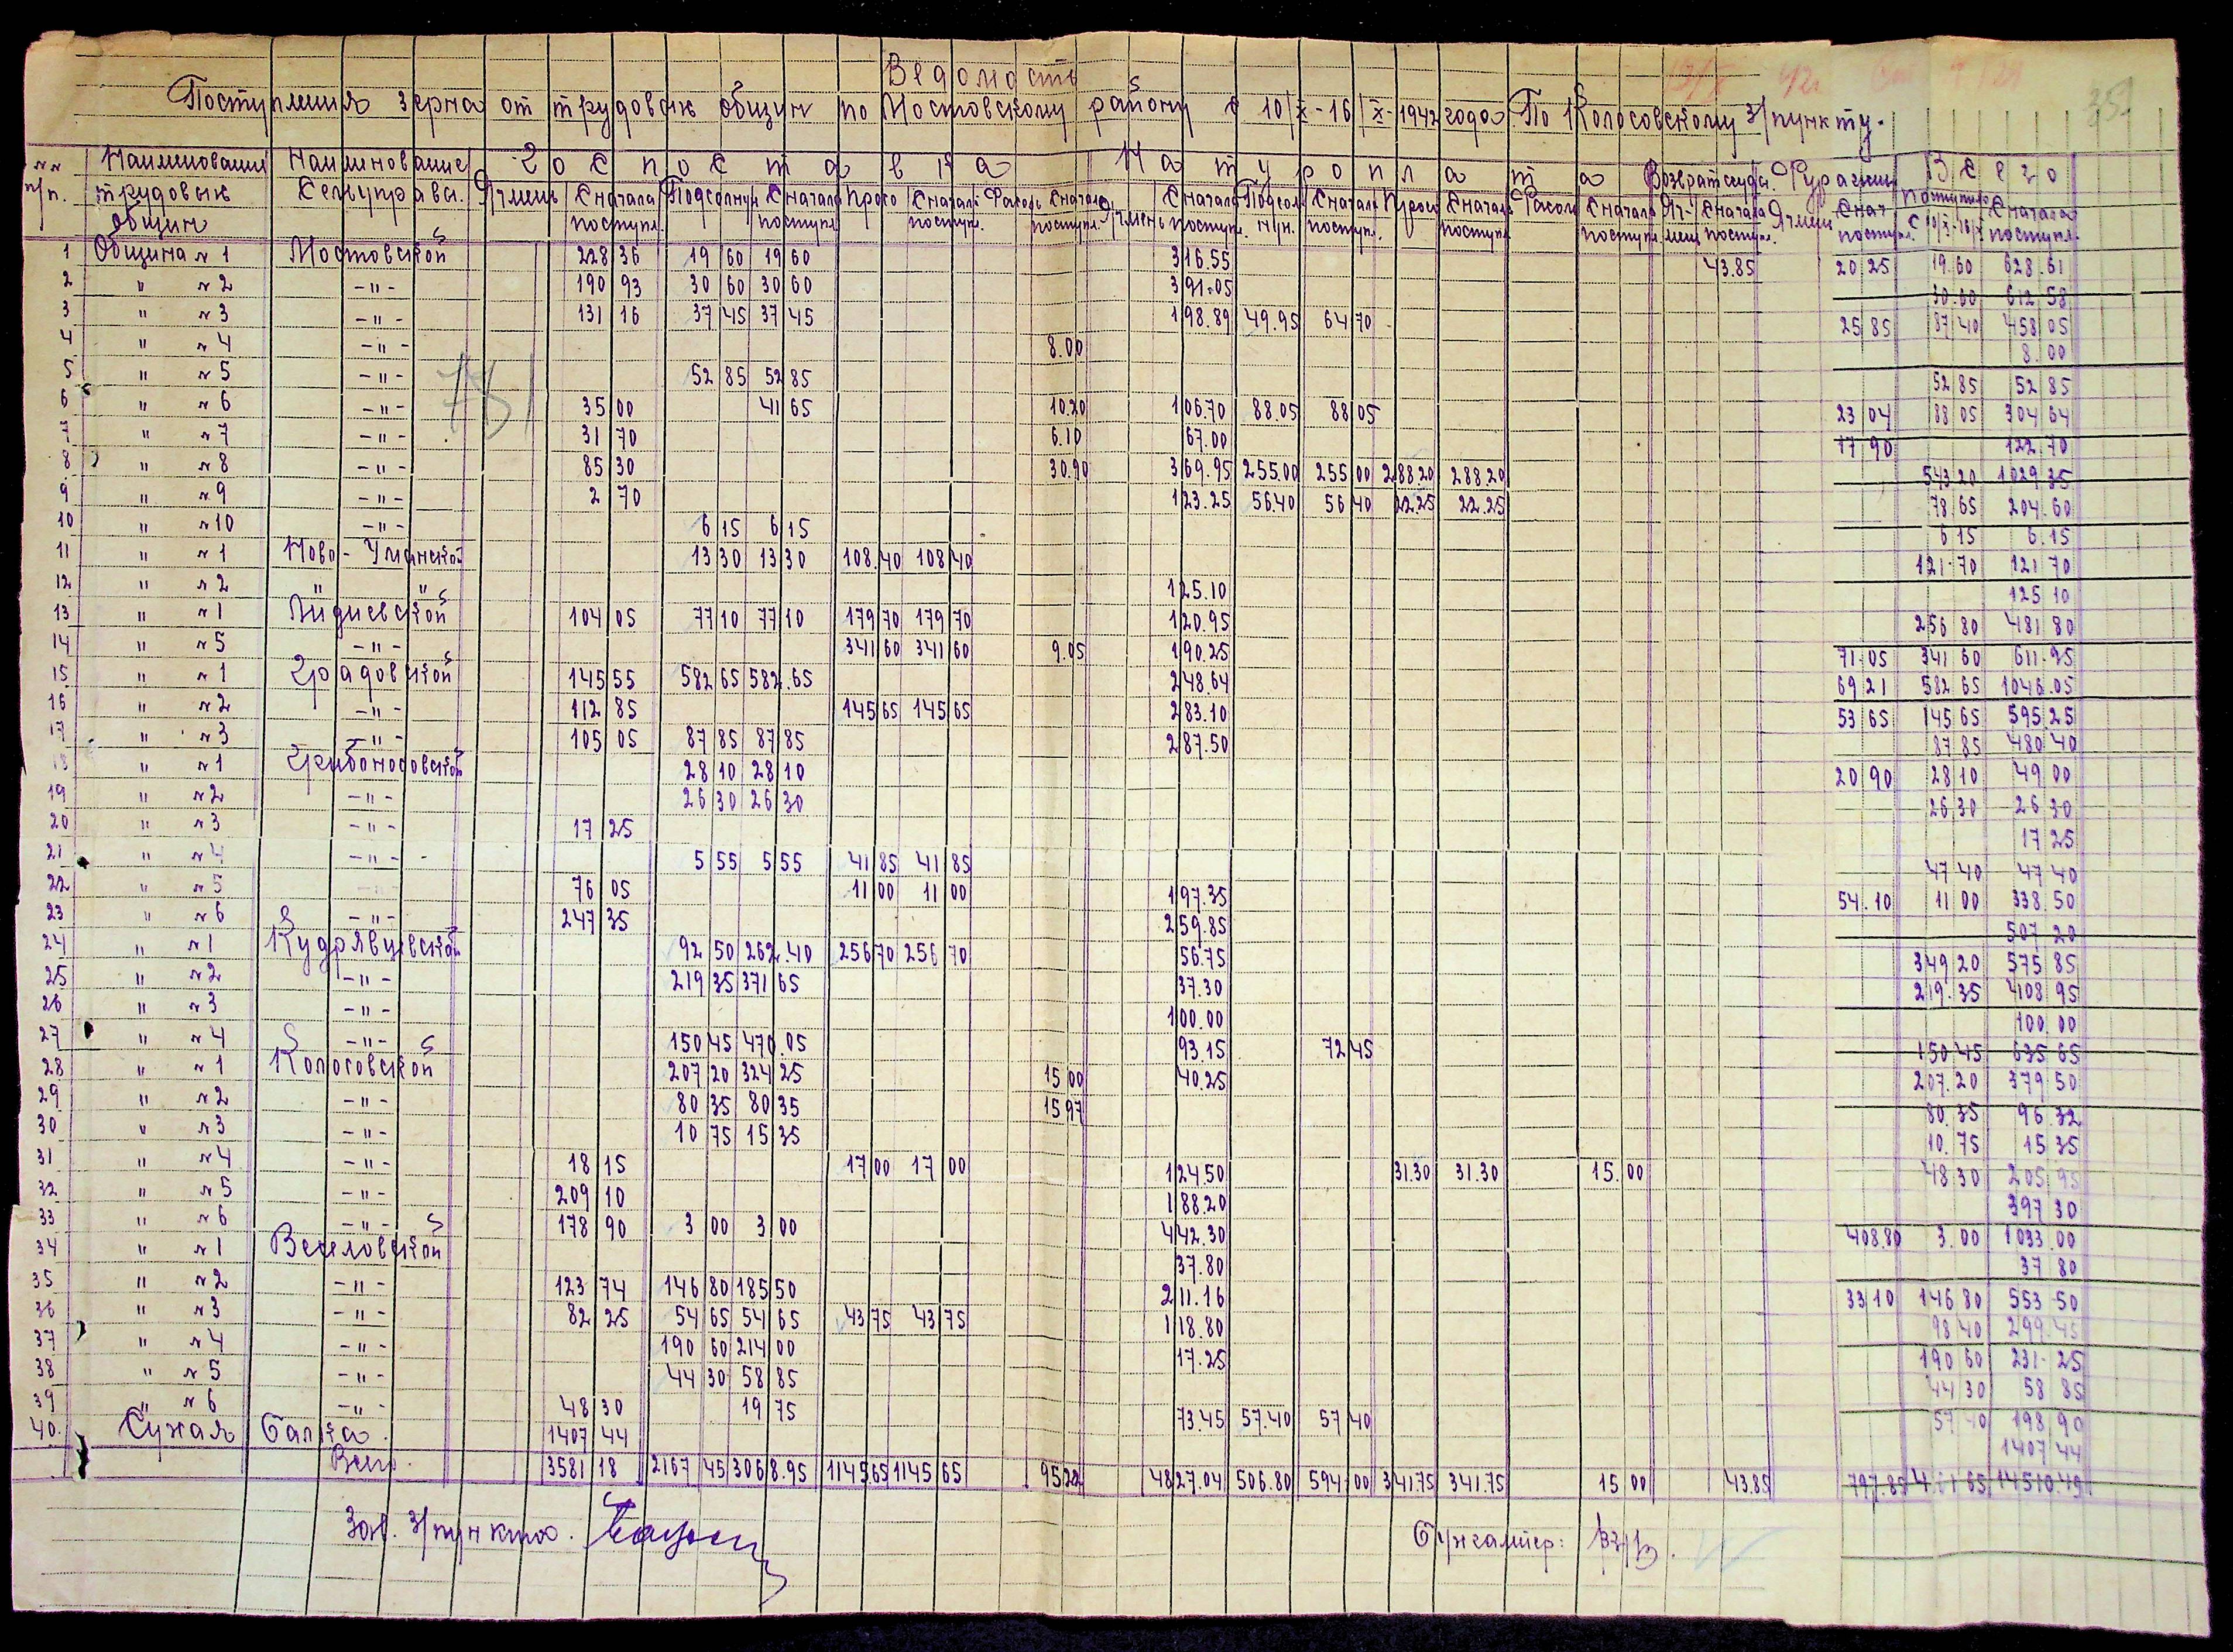 Ведомость
Поступления зерна от трудовых общин по Мостовскому району с 10/X-16/X-1942 года. По Колосовскому з/пункту.
№№ п/п. Наименование трудовых общин Наименование Сельуправы. Госпоставка Натуроплата Возврат ссуды Фураж Всего
Ячмень Сначала поступл. Подсолнух Сначала поступл. Просо Сначала поступл. Фасоль Сначала поступл. Ячмень Сначала поступл. Подсолнун. Сначала поступл. Просо Сначала поступл. Фасоль Сначала поступл. Яч-мень Сначала поступл. Ячмень Снач поступл. Поступило с 10/X-16/X Сначала поступл.
1 Община №1 Мостовской 228 36 19 60 19 60 316.55 43.85 20 25 19.60 628.61
2 " №2 -"- 190 93 30 60 30 60 391.05 30.60 612 58
3 " №3 -"- 131 16 37 45 37 45 198.89 49.95 64 70 25 85 87 40 458 05
4 " №4 -"- 8.00 8.00
5 " №5 -"- 52 85 52 85 52 85 52 85
6 " №6 -"- 35 00 41 65 10.20 106.70 88.05 88 05 23 04 88 05 304 64
7 " №7 -"- 31 70 6.10 67.00 17 90 122 70
8 " №8 -"- 85 30 30.90 369.95 255.00 255 00 288 20 288 20 543 20 1029 35
9 " №9 -"- 2 70 123.25 56.40 56 40 22.25 22.25 78 65 204.60
10 " №10 -"- 6 15 6 15 6 15 6.15
11 " №1 Ново-Уманской 13 30 13 30 108.40 108 40 121.70 121 70
12 " №2 " " 125.10 125 10
13 " №1 Лидиевской 104 05 77 10 77 10 179 70 179 70 120.95 256 80 481 80
14 " №5 -"- 341 60 341 60 9.05 190.25 71.05 341 60 611.95
15 " №1 Градовской 145 55 582 65 582.65 248.64 69 21 582 65 1046.05
16 " №2 -"- 112 85 145 65 145 65 283.10 53 65 145 65 595 25
17 " №3 -"- 105 05 87 85 87 85 287.50 87 85 480 40
18 " №1 Грибоносовской 28 10 28 10 20 90 28 10 49 00
19 " №2 -"- 26 30 26 30 26 30 26 30
20 " №3 -"- 17 25 17 25
21 " №4 -"- 5 55 5 55 41 85 41 85 47 40 47 40
22 " №5 76 05 11 00 11 00 197.35 54.10 11 00 338.50
23 " №6 -"- 247 35 259.85 507 20
24 " №1 Кудрявцевской 92 50 262.40 256 70 256 70 56.75 349 20 575 85
25 " №2 -"- 219 35 371 65 37.30 219.35 408 95
26 " №3 -"- 100.00 100.00
27 " №4 -"- 150 45 470.05 93.15 72 45 150 45 635 65
28 " №1 Колосовской 207 20 324 25 15 00 40.25 207.20 379 50
29 " №2 -"- 80 35 80 35 15 97 80.35 96 32
30 " №3 -"- 10 75 15 35 10.75 15 35
31 " №4 -"- 18 15 17 00 17 00 124.50 31.30 31.30 15.00 48 30 205 95
32 " №5 -"- 209 10 188.20 397 30
33 " №6 -"- 178 90 3 00 3 00 442.30 408.80 3.00 1033.00
34 " №1 Веселовской 37.80 37 80
35 " №2 -"- 123 74 146 80 185 50 211.16 33 10 146 80 553 50
36 " №3 -"- 82 25 54 65 54 65 43 75 43 75 118.80 98 40 299.45
37 " №4 -"- 190 60 214 00 17.25 190 60 231.25
38 " №5 -"- 44 30 58 85 44 30 58 85
39 " №6 -"- 48 30 19 75 73.45 57.40 57 40 57 40 198 90
40. Сухая Балка. 1407 44 1407 44
Всего. 3581 18 2167 45 3068.95 1145 65 1145 65 95 22 4827.04 506.80 594 00 341.75 341.75 15 00 43.85 797.85 14510.49
Зав. з/пункта.
Бухгалтер: